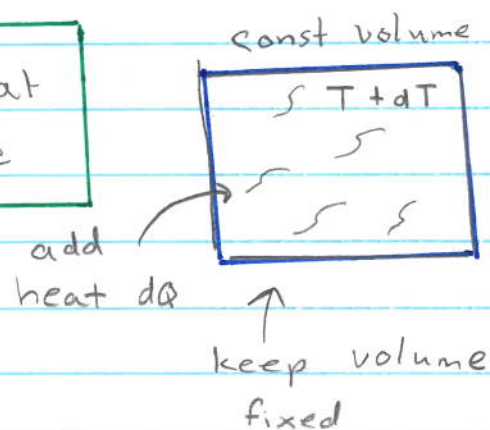 at
e
const volume
T + dT
add
heat dQ
keep volume
fixed